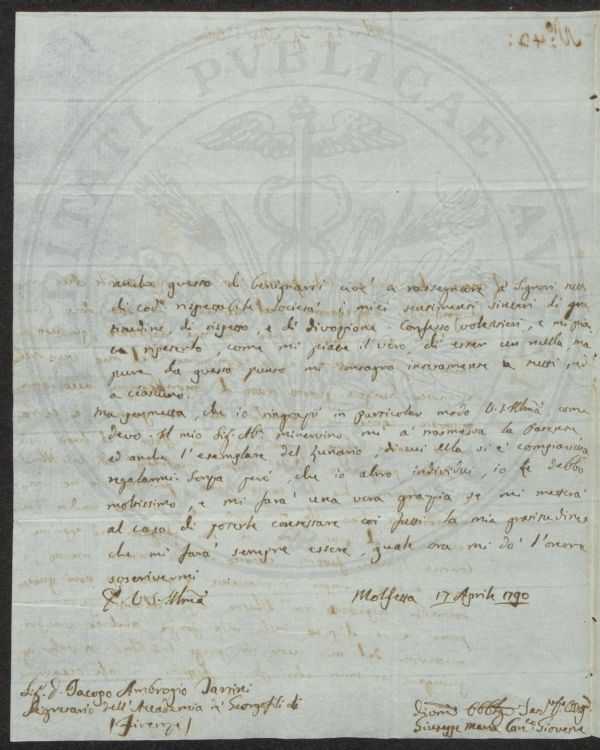 N.° 42:
anche questo di benignarsi cioè a rassegnare a' Signori tutti
di cod.ª rispettabile Società i miei sentimenti sinceri di gra-
titudine, di rispetto, e di divozione. Confesso volentieri, e mi pia-
ce ripeterlo, come mi piace il vero, di esser un nulla ma
pure da questo punto mi consagro interamente a tutti, ed
a ciascuno.
Ma permetta, che io ringrazi in particolar modo V. S. Illmã come
devo. Il mio Sig. Ab. Minervino mi à trasmessa la Patente
ed anche l'esemplare del Lunario, di cui ella si è compiaciuta
regalarmi. Sappia però, che io altro individui, io le debbo
moltissimo, e mi farà una vera grazia se mi metterà
al caso di poterle contestare coi fatti la mia gratitudine,
che mi farà sempre essere, quale ora mi dò l'onore
soscrivermi
Di V. S. Illmã
Molfetta 17 Aprile 1790
Sig. D. Jacopo Ambrogio Tartini
Segretario dell'Accademia de' Georgofili di
(Firenze)
Giuseppe Maria Can.co Giovene
PROSPERITATI PUBLICAE AUGENDAE